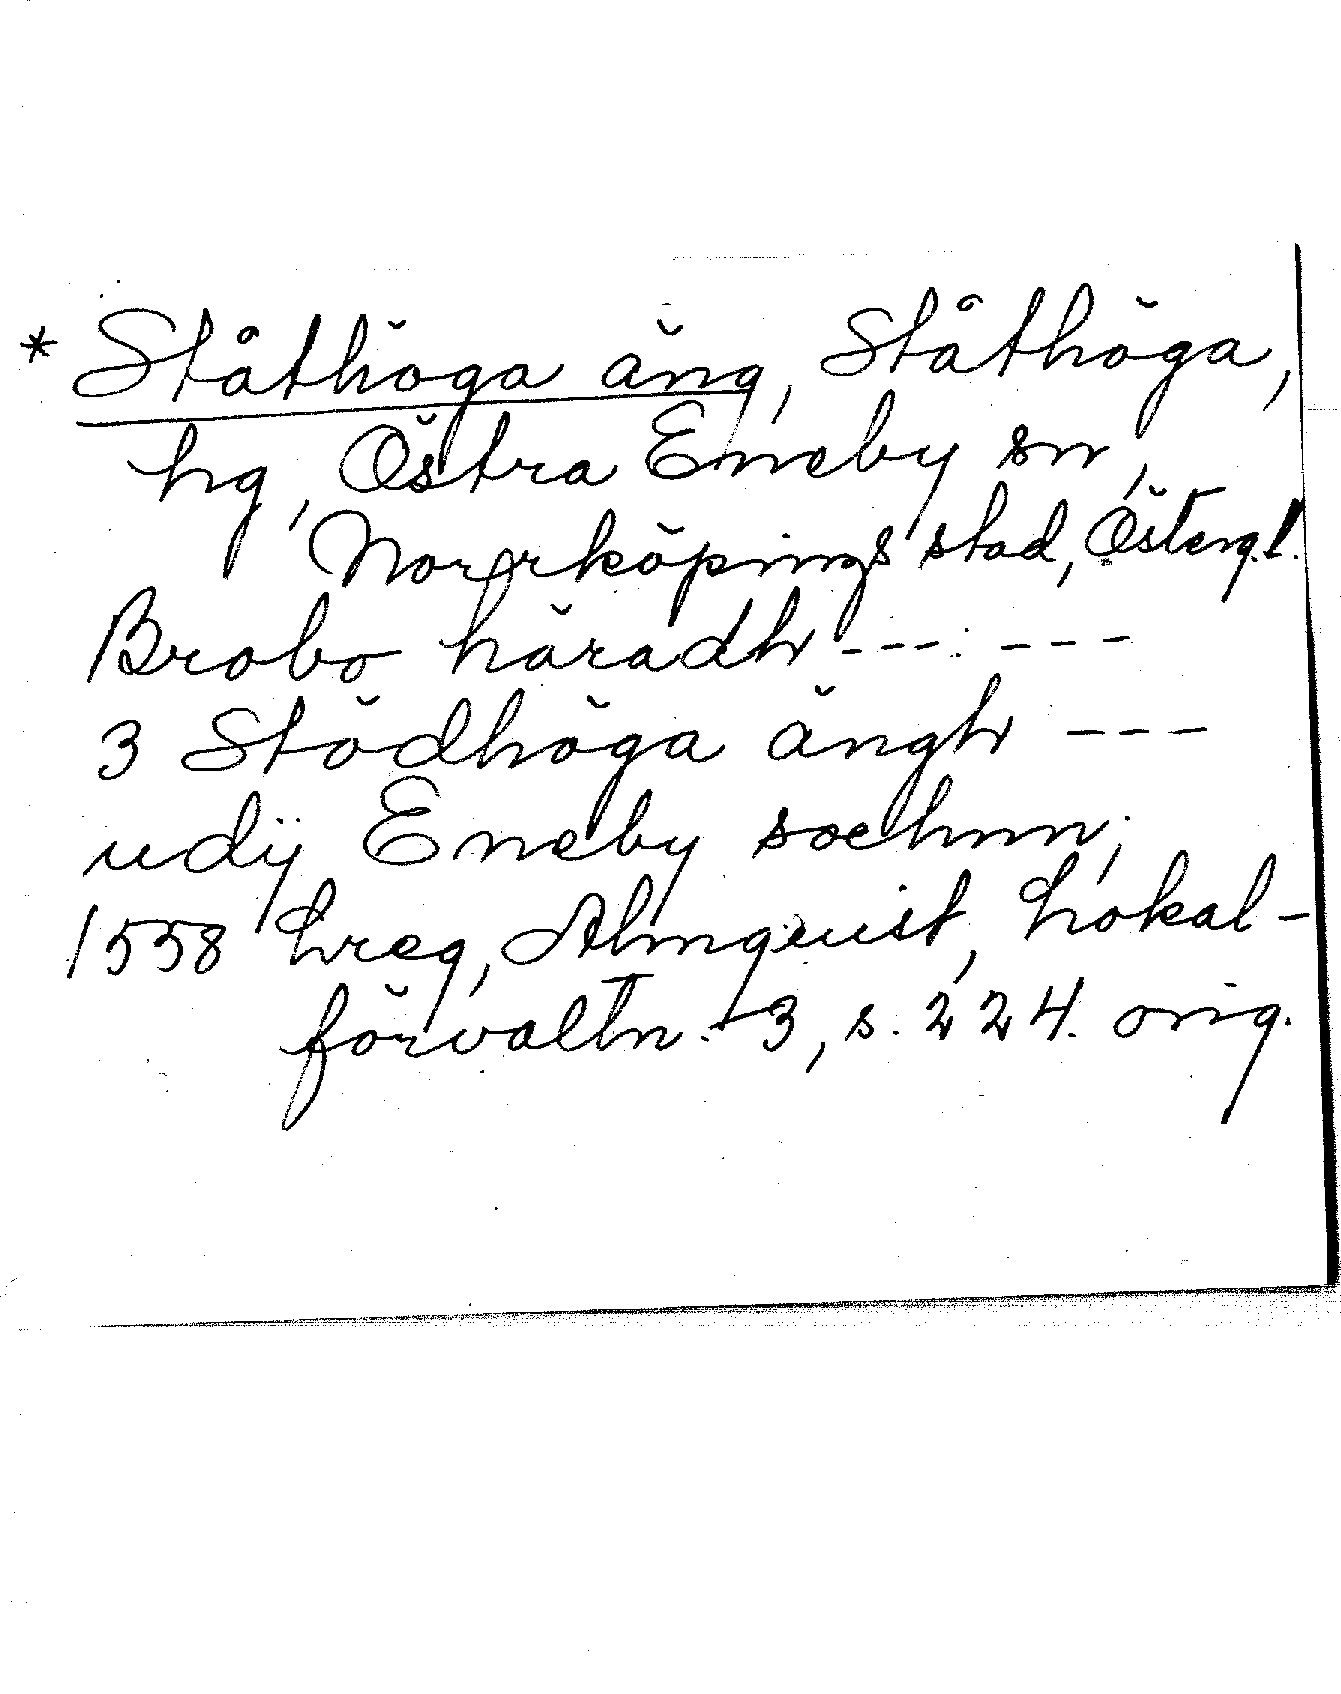 * Ståthöga äng, Ståthöga,
hg, Östra Eneby sn,
Norrköpings stad, Östergl.
Brobo häradh --- ---
3 Stödhöga ängh ---
udij Eneby sochnn;
1558 hreg, Almquist, Lokal-
förvaltn. 3, s. 224. orig.